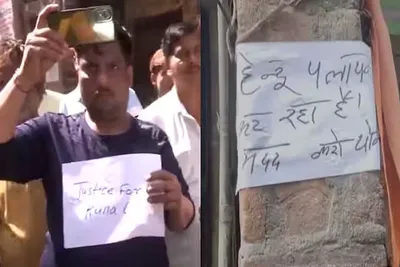 Justice For
Kunal
हिन्दू पलायन
कर रहा है।
मदद करो